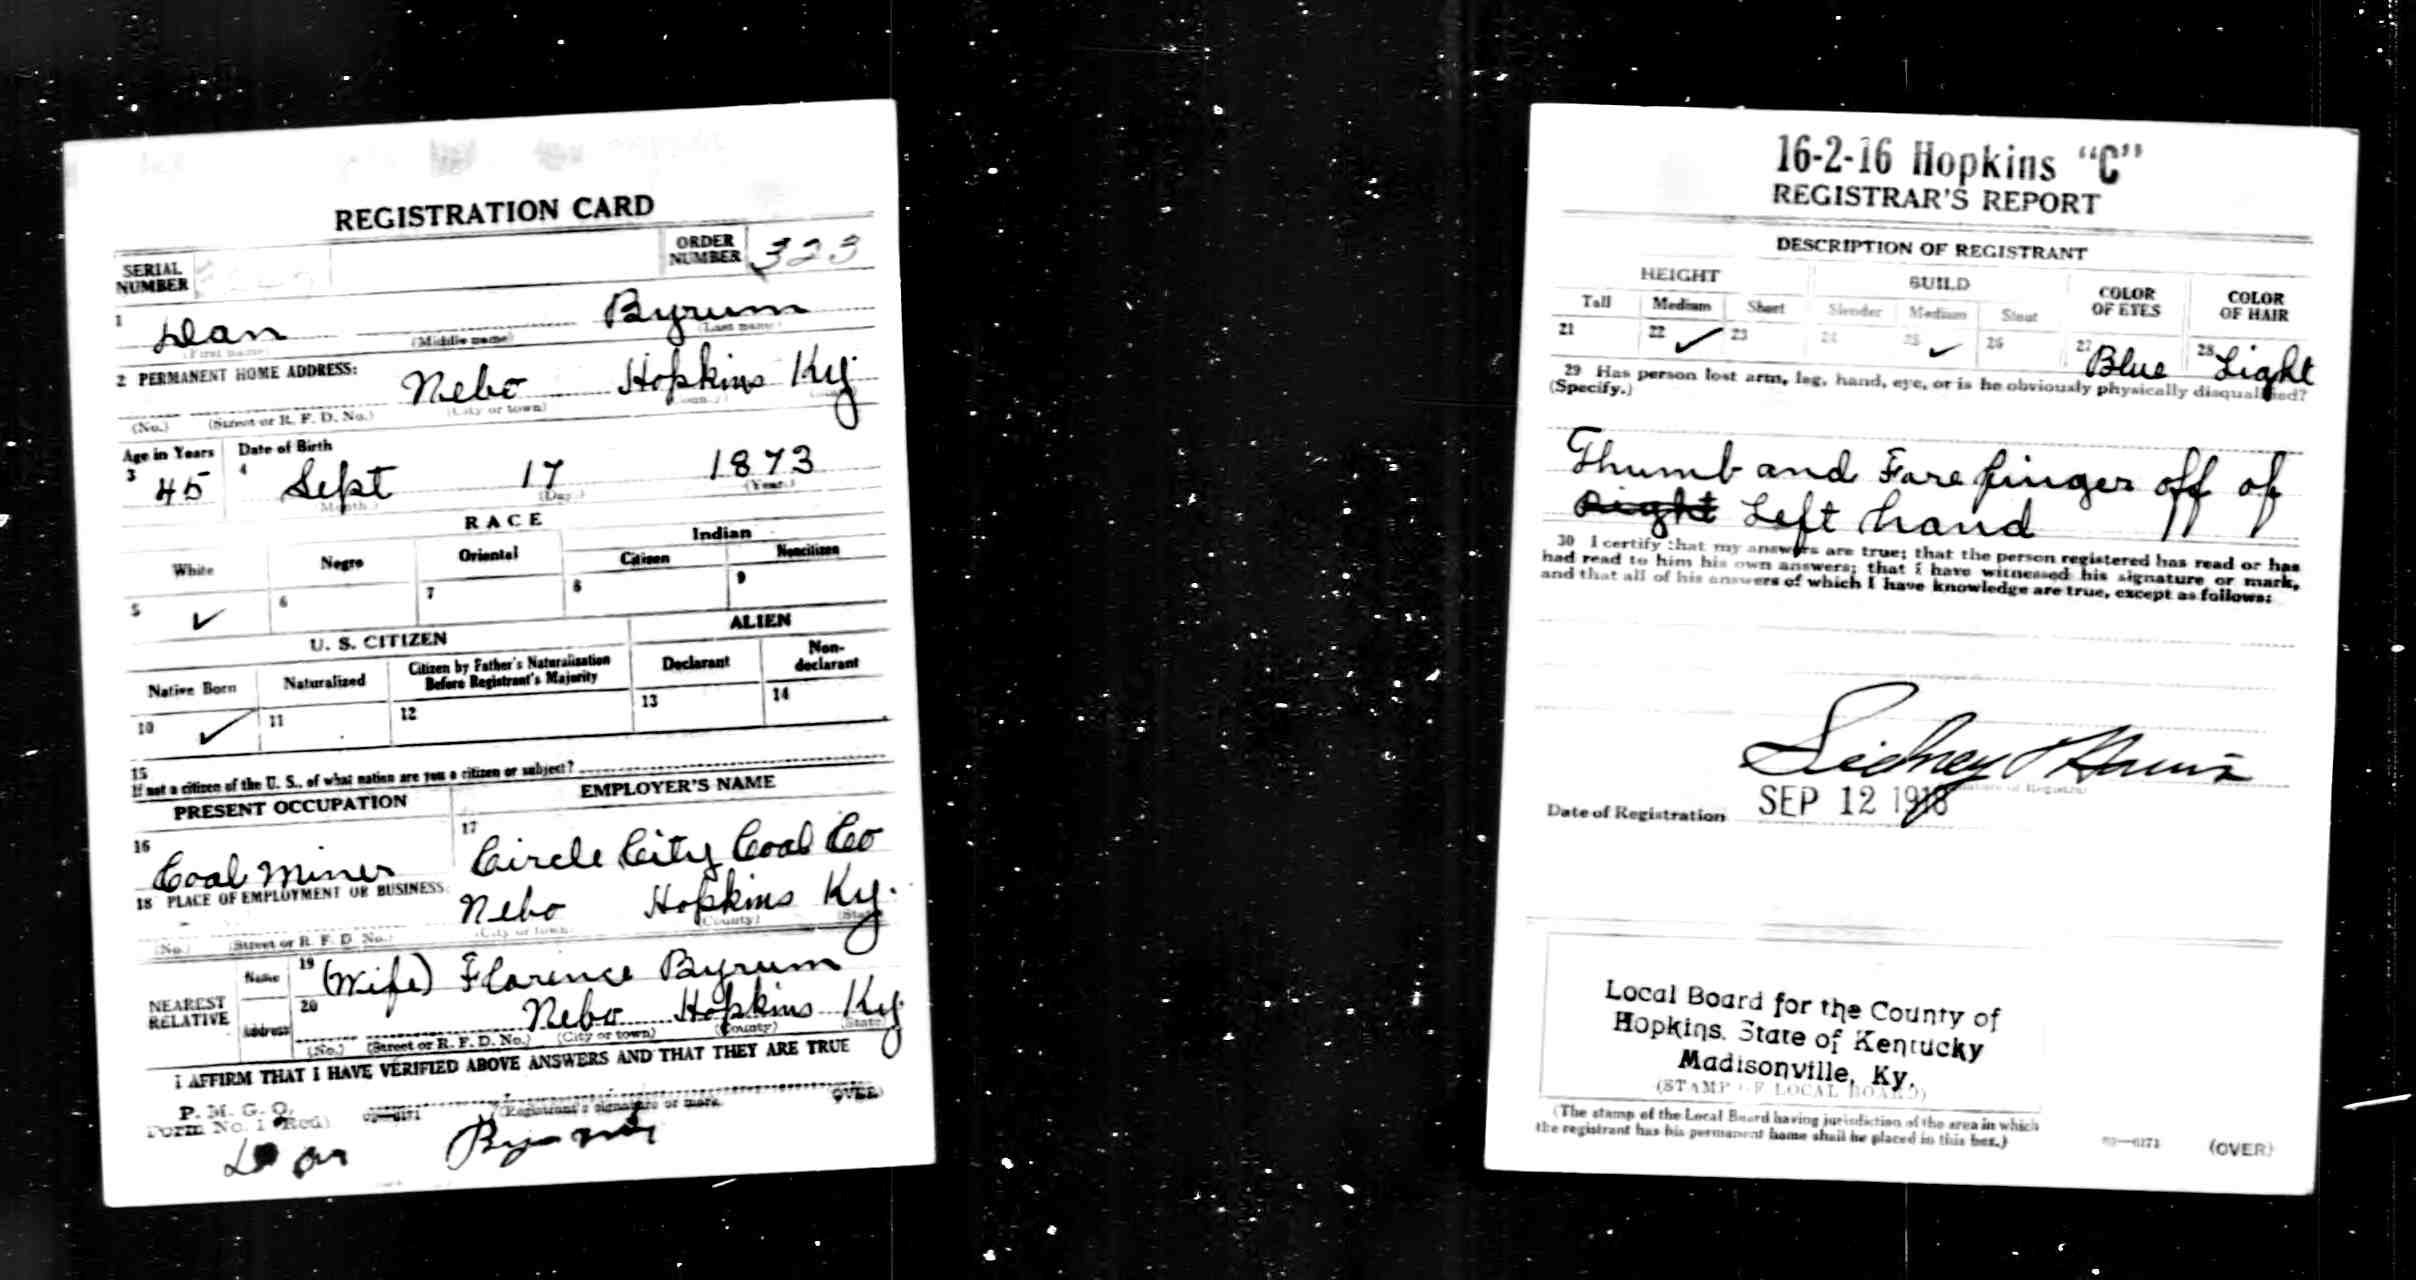 REGISTRATION CARD
SERIAL NUMBER
ORDER NUMBER 323
1 Dan Byrum
(First name) (Middle name) (Last name)
2 PERMANENT HOME ADDRESS:
Nebo Hopkins Ky.
(No.) (Street or R. F. D. No.) (City or town) (County)
Age in Years Date of Birth
3 45 4 Sept 17 1873
(Month) (Day) (Year)
RACE
White Negro Oriental Indian
Citizen Noncitizen
5 ✓ 6 7 8 9
U. S. CITIZEN ALIEN
Native Born Naturalized Citizen by Father's Naturalization Before Registrant's Majority Declarant Non-declarant
10 ✓ 11 12 13 14
15
If not a citizen of the U. S., of what nation are you a citizen or subject?
PRESENT OCCUPATION EMPLOYER'S NAME
16 Coal Miner 17 Circle City Coal Co
18 PLACE OF EMPLOYMENT OR BUSINESS:
Nebo Hopkins Ky.
(No.) (Street or R. F. D. No.) (City or town) (County) (State)
NEAREST RELATIVE
Name 19 (Wife) Florence Byrum
Address 20 Nebo Hopkins Ky
(No.) (Street or R. F. D. No.) (City or town) (County) (State)
I AFFIRM THAT I HAVE VERIFIED ABOVE ANSWERS AND THAT THEY ARE TRUE
P. M. G. O.
Form No. 1 (Red) (Registrant's signature or mark) (OVER)
Dan
16-2-16 Hopkins "C"
REGISTRAR'S REPORT
DESCRIPTION OF REGISTRANT
HEIGHT BUILD COLOR OF EYES COLOR OF HAIR
Tall Medium Short Slender Medium Stout
21 22 ✓ 23 24 25 ✓ 26 27 Blue 28 Light
29 Has person lost arm, leg, hand, eye, or is he obviously physically disqualified?
(Specify.)
Thumb and Fore finger off of
right Left hand
30 I certify that my answers are true; that the person registered has read or has
had read to him his own answers; that I have witnessed his signature or mark,
and that all of his answers of which I have knowledge are true, except as follows:
Sidney
Date of Registration SEP 12 1918
Local Board for the County of
Hopkins, State of Kentucky
Madisonville, Ky.
(STAMP OF LOCAL BOARD)
(The stamp of the Local Board having jurisdiction of the area in which
the registrant has his permanent home shall be placed in this box.)
(OVER)